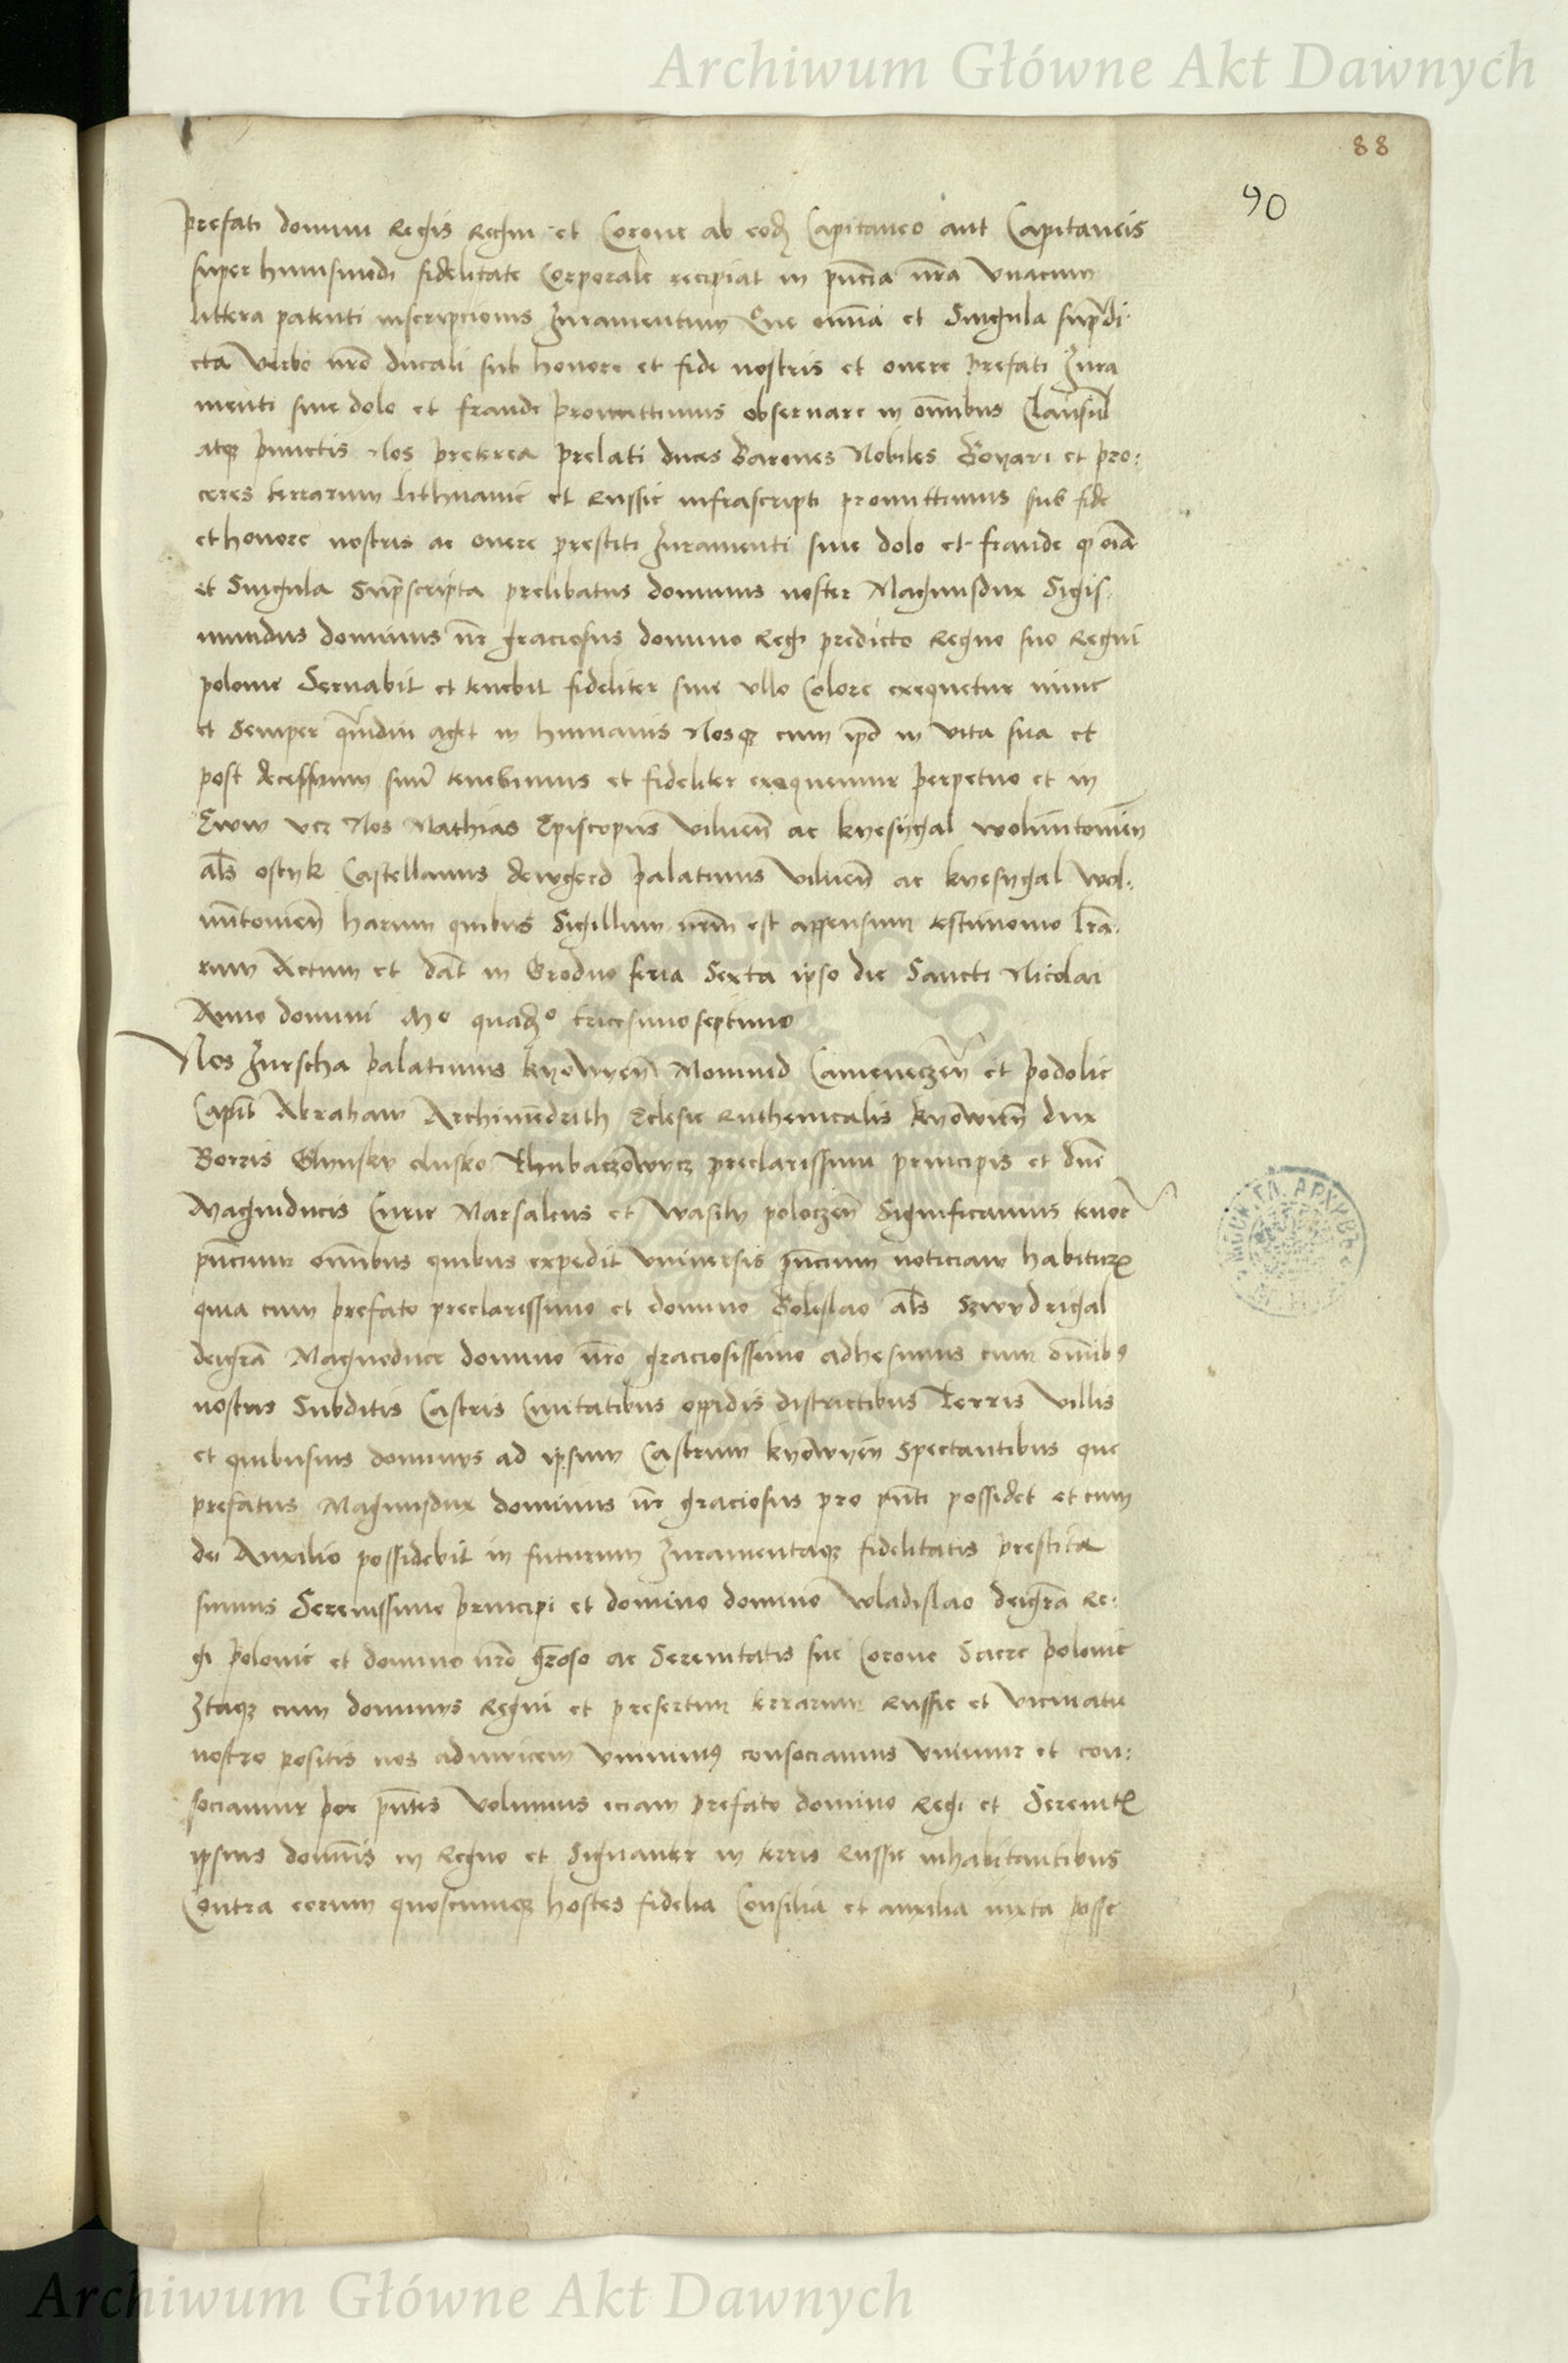 Archiwum Główne Akt Dawnych
88
90
prefati domini Regis Regni et Corone ab eodē Capitaneo aut Capitaneis
super huiusmodi fidelitate Corporale recipiat in pn̄cia nr̄a Vnacum
littera patenti inscripcionis Iuramentum Que omnīa et Singula supradi-
cta Verbo nrō ducali sub honore et fide nostris et onere prefati Iura
menti sine dolo et fraude promittimus observare in omībus Clausul
atqꝫ punctis Nos preterea prelati duces Barones Nobiles Boyari et pro:
ceres terrarum lithuanie et Russie infrascripti promittimus sub fide
et honore nostris ac onere prestiti Iuramenti sine dolo et fraude qꝫ oīa
et Singula Supᵃscripta prelibatus dominus noster Magnusdux Sigis-
mundus dominus nr̄ graciosus domino Regi predicto Regno suo Regni
polonie Servabit et tenebit fideliter sine vllo Colore exequetur nunc
et Semper quādiu aget in humanis Nosqꝫ cum ip̄o in vita sua et
post decessum suū tenebimus et fideliter exequemur perpetuo et in
Ewm vcꝫ Nos Mathias Episcopus Vilnen̄ ac kyesygal woluntonien̄
als̄ ostyk Castellanus dewgerd palatinus Vilnen̄ ac kyesygal Wol-
untonien̄ harum quibus Sigillum nrm̄ est appensum testimonio lrā-
rum Actum et dat̄ in Grodno feria Sexta ipso die Sancti Nicolai
Anno domini Mᵒ quadꝫᵒ tricesimoseptimo
Nos Iurscha palatinus kyowyen̄ Moniuid Cameneczen̄ et podolie
Capit̄ Abraham Archimēdrith Eclesie Ruthenicalis kyowien̄ dux
Borris Glynsky chusko preclarissimi principis et dnī
Magniducis Curie Marsalcus et Wasily poloczen̄ Significamus tenor̄
pn̄cium omībus quibus expedit vniversis pn̄cium noticiam habiturꝭ
quia cum prefato preclarissimo et domino Boleslao als̄ Szwydrigal
deigrā Magnoduce domino nrō graciosissimo adhesimus cum omībꝰ
nostris Subditis Castris Civitatibus oppidis districtibus Terris Villis
et quibusuis dominys ad ipsum Castrum kyowyen̄ Spectantibus que
prefatus Magnusdux dominus nr̄ graciosus pro pn̄ti possidet et cum
dei Auxilio possidebit in futurum Iuramentaqꝫ fidelitatis prestita
sumus Serenissimo principi et domino domino Wladislao deigrā Re:
gi polonie et domino nrō grōso ac Serenitatis sue Corone Sacre polonie
Itaqꝫ cum dominys Regni et presertim terrarum Russie et vicinatu
nostro positis nos adinvicem Vnimus consociamus Vnimur et con:
sociamur per pn̄tes Volumus eciam prefato domino Regi et Serenitꝭ
ipsius domīis in Regno et Signanter in terris Russie inhabitantibus
Contra eorum quoscumqꝫ hostes fidelia Consilia et auxilia iuxta posse
Archiwum Główne Akt Dawnych